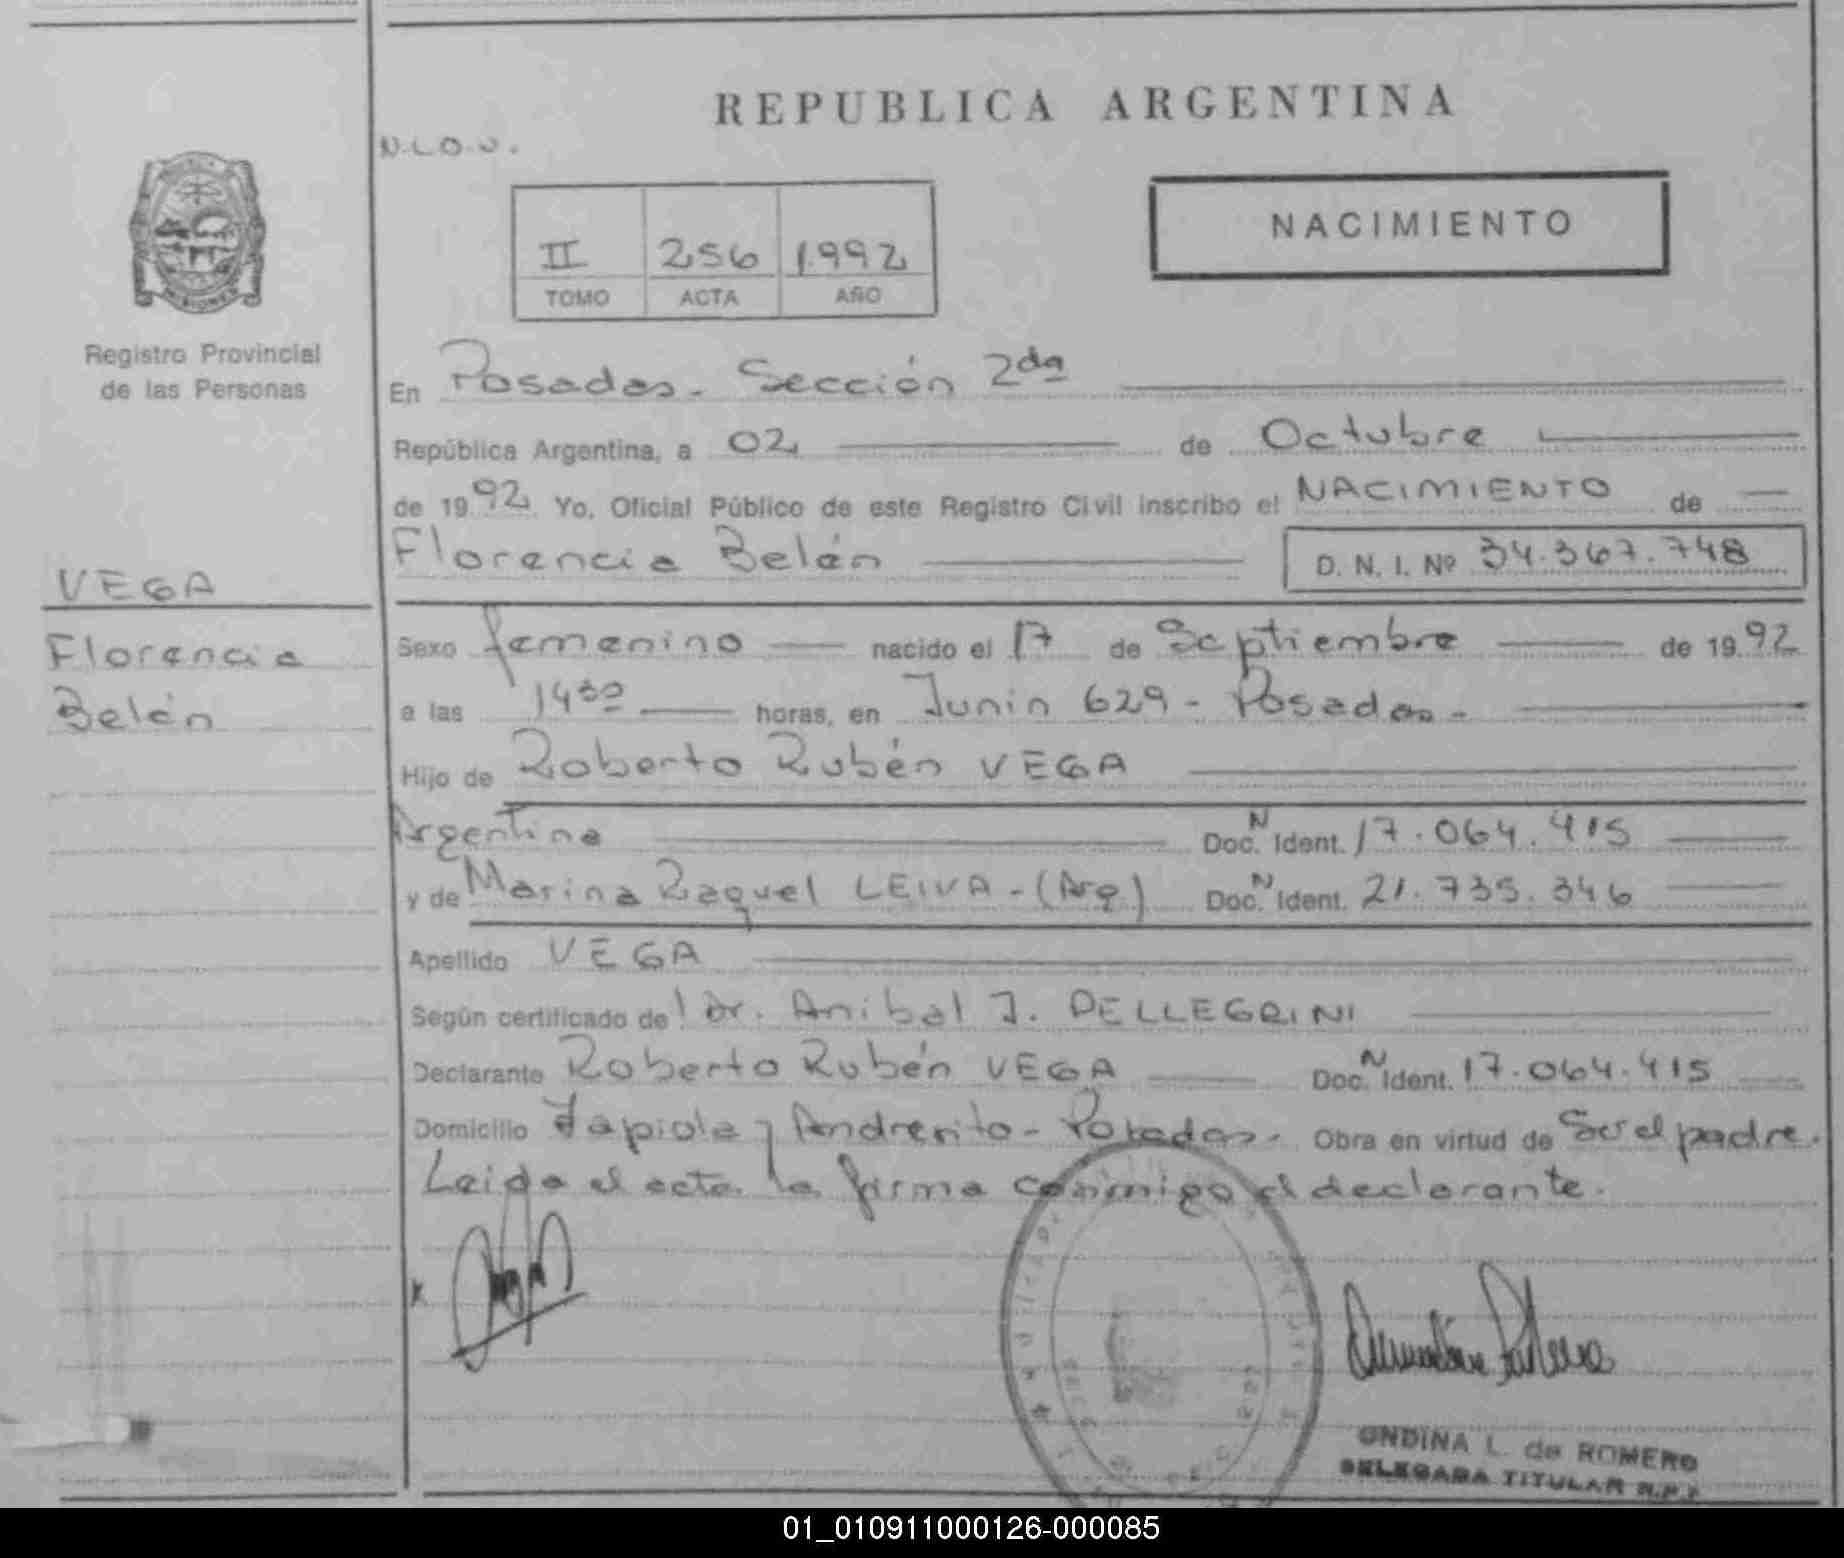 REPUBLICA ARGENTINA
N.L.O.V.
NACIMIENTO
II 256 1.992
TOMO ACTA AÑO
MISIONES
Registro Provincial
de las Personas
En Posadas - Sección 2da
República Argentina, a 02 de Octubre
de 19 92 Yo, Oficial Público de este Registro Civil inscribo el NACIMIENTO de
Florencia Belén D. N. I. Nº 34.367.748
VEGA
Florencia
Belén
Sexo femenino nacido el 17 de Septiembre de 19 92
a las 14 30 horas, en Junin 629 - Posadas -
Hijo de Roberto Rubén VEGA
Argentina Doc. N Ident. 17.064.415
y de Marina Raquel LEIVA - (Arg) Doc. N Ident. 21.735.346
Apellido VEGA
Según certificado del Dr. Anibal J. PELLEGRINI
Declarante Roberto Rubén VEGA Doc. N Ident. 17.064.415
Domicilio Zapiola y Andresito - Posadas. Obra en virtud de Ser el padre.
Leida el acta la firma conmigo el declarante.
x
ONDINA L. de ROMERO
DELEGADA TITULAR R.P.P.
01_010911000126-000085